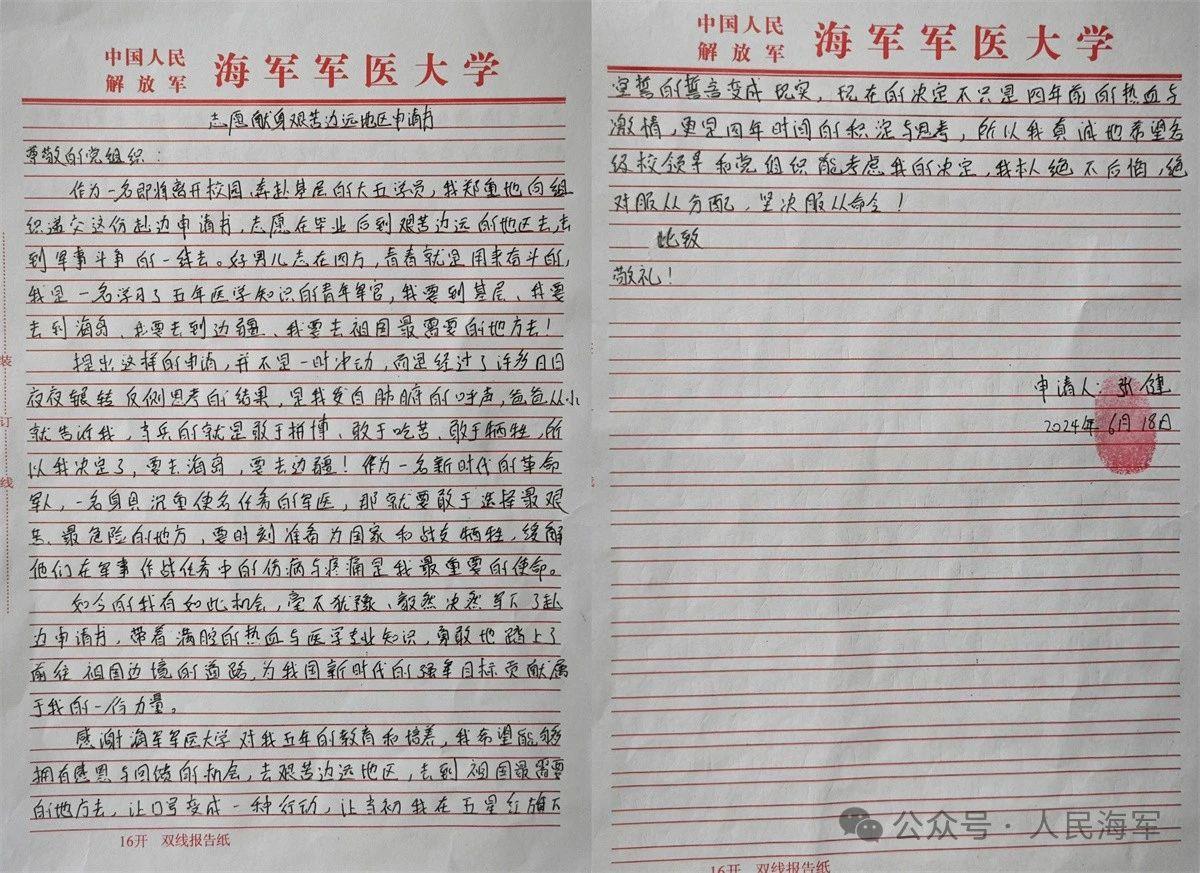 中国人民
解放军
海军军医大学
志愿献身艰苦边远地区申请书
尊敬的党组织：
作为一名即将离开校园、奔赴基层的大五学员，我郑重地向组
织递交这份赴边申请书，志愿在毕业后到艰苦边远的地区去，去
到军事斗争的一线去。好男儿志在四方，青春就是用来奋斗的，
我是一名学习了五年医学知识的青年军官，我要到基层、我要
去到海岛、我要去到边疆、我要去祖国最需要的地方去！
提出这样的申请，并不是一时冲动，而是经过了许多日日
夜夜辗转反侧思考的结果，是我发自肺腑的呼声，爸爸从小
就告诉我，当兵的就是敢于拼博、敢于吃苦、敢于牺牲，所
以我决定了，要去海岛，要去边疆！作为一名新时代的革命
军人，一名身具沉重使名任务的军医，那就要敢于选择最艰
苦、最危险的地方，要时刻准备为国家和战友牺牲，缓解
他们在军事作战任务中的伤病与疼痛是我最重要的使命。
如今的我有如此机会，毫不犹豫、毅然决然写下了赴
边申请书，带着满腔的热血与医学专业知识，勇敢地踏上了
前往祖国边境的道路，为我国新时代的强军目标贡献属
于我的一份力量。
感谢海军军医大学对我五年的教育和培养，我希望能够
拥有感恩与回馈的机会，去艰苦边远地区，去到祖国最需要
的地方去，让口号变成一种行动，让当初我在五星红旗下
16开 双线报告纸
装
订
线
中国人民
解放军
海军军医大学
宣誓的誓言变成现实，现在的决定不只是四年前的热血与
激情，更是四年时间的积淀与思考，所以我真诚地希望各
级校领导和党组织能考虑我的决定，我本人绝不后悔，绝
对服从分配，坚决服从命令！
此致
敬礼！
申请人：张健
2024年6月18日
公众号·人民海军
16开 双线报告纸